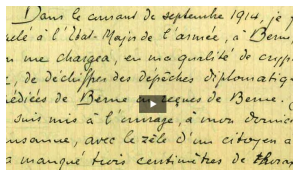 Dans le courant de septembre 1914, je f
pelé à l'Etat-Major de l'armée, à Berne,
on me chargea, en ma qualité de cryp
, de déchiffrer des dépêches diplomatiq
édiées de Berne ou reçues de Berne. J
suis mis à l'ouvrage, à mon domici
usanne, avec le zèle d'un citoyen a
a manqué trois centimètres de thorax